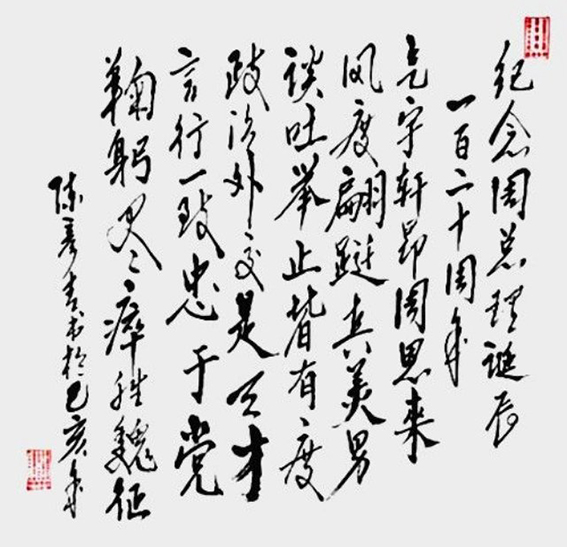 纪念周总理诞辰
一百二十周年
气宇轩昂周恩来
风度翩跹真美男
谈吐举止皆有度
政治外交是天才
言行一致忠于党
鞠躬尽瘁胜魏征
陈书于己亥年